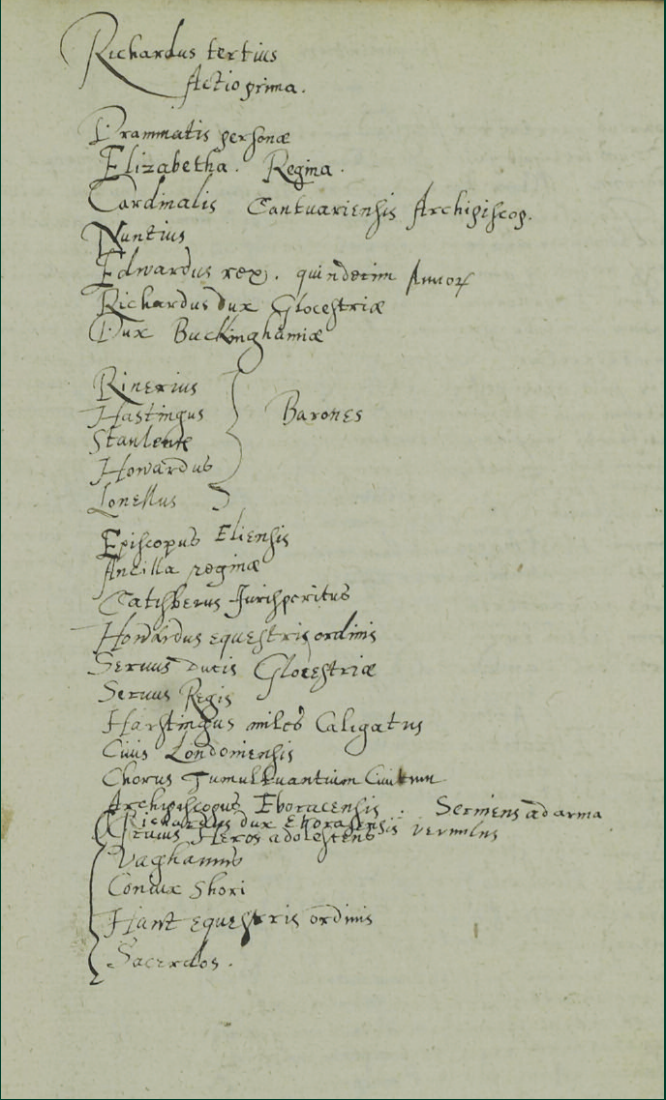 Richardus tertius
Actio prima.
Drammatis personæ
Elizabetha. Regina.
Cardinalis Cantuariensis Archipiscop.
Nuntius
Edwardus rex. quindecim Annor
Richardus dux Glocestriæ
Dux Buckinghamiæ
Riuerius
Hastingus Barones
Howardus
Louellus
Episcopus Eliensis
Ancilla reginæ
Catisberus Jurisperitus
Howardus equestris ordinis
Seruus ducis Glocestriæ
Seruus Regis
Harstingus miles Caligatus
Ciuis Londoniensis
Chorus Tumultuantium Ciuium
Archipiscopus Eboracensis. Seruiens ad arma
Richardus dux Eboracensis
Heros adolescens
Coniux Shori
equestris ordinis
Sacerdos.